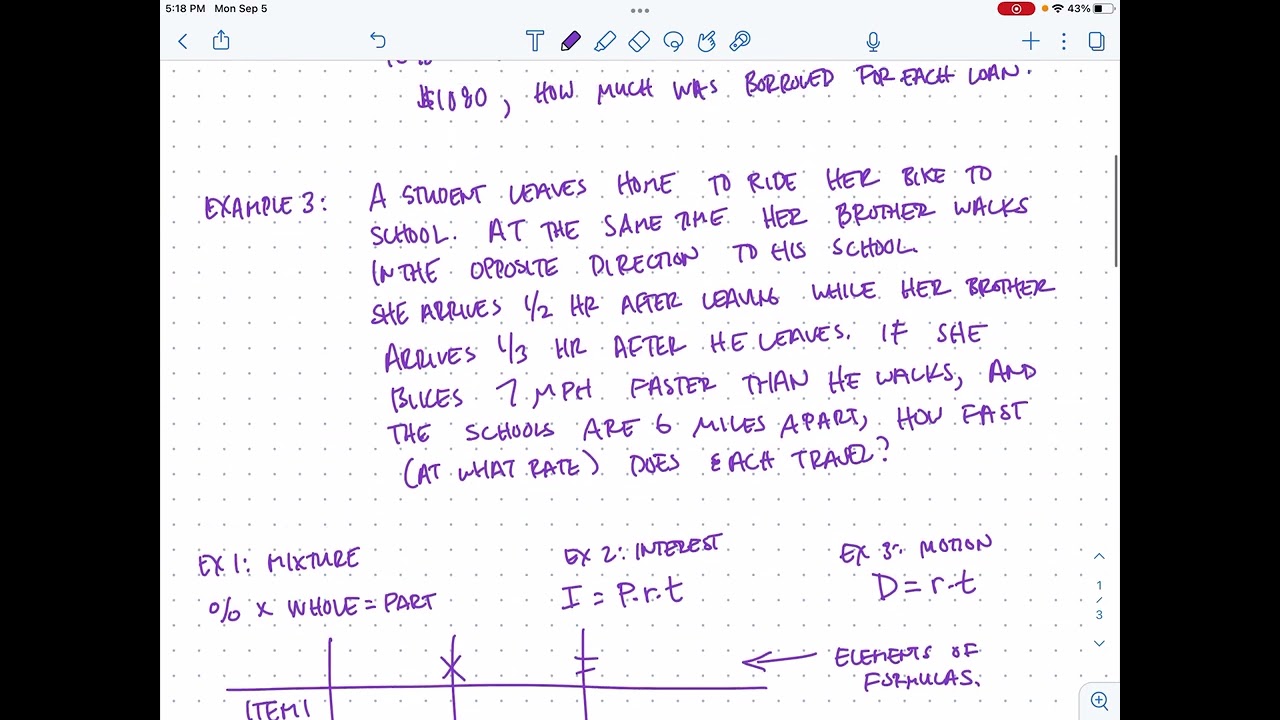 5:18 PM Mon Sep 5
43%
$1080, HOW MUCH WAS BORROWED FOR EACH LOAN.
EXAMPLE 3: A STUDENT LEAVES HOME TO RIDE HER BIKE TO
SCHOOL. AT THE SAME TIME HER BROTHER WALKS
IN THE OPPOSITE DIRECTION TO HIS SCHOOL.
SHE ARRIVES 1/2 HR AFTER LEAVING WHILE HER BROTHER
ARRIVES 1/3 HR AFTER HE LEAVES. IF SHE
BIKES 7 MPH FASTER THAN HE WALKS, AND
THE SCHOOLS ARE 6 MILES APART, HOW FAST
(AT WHAT RATE) DOES EACH TRAVEL?
EX 1: MIXTURE
% X WHOLE = PART
EX 2: INTEREST
I = P.r.t
EX 3: MOTION
D = r.t
1
/
3
X =
ELEMENTS OF
FORMULAS.
ITEM 1